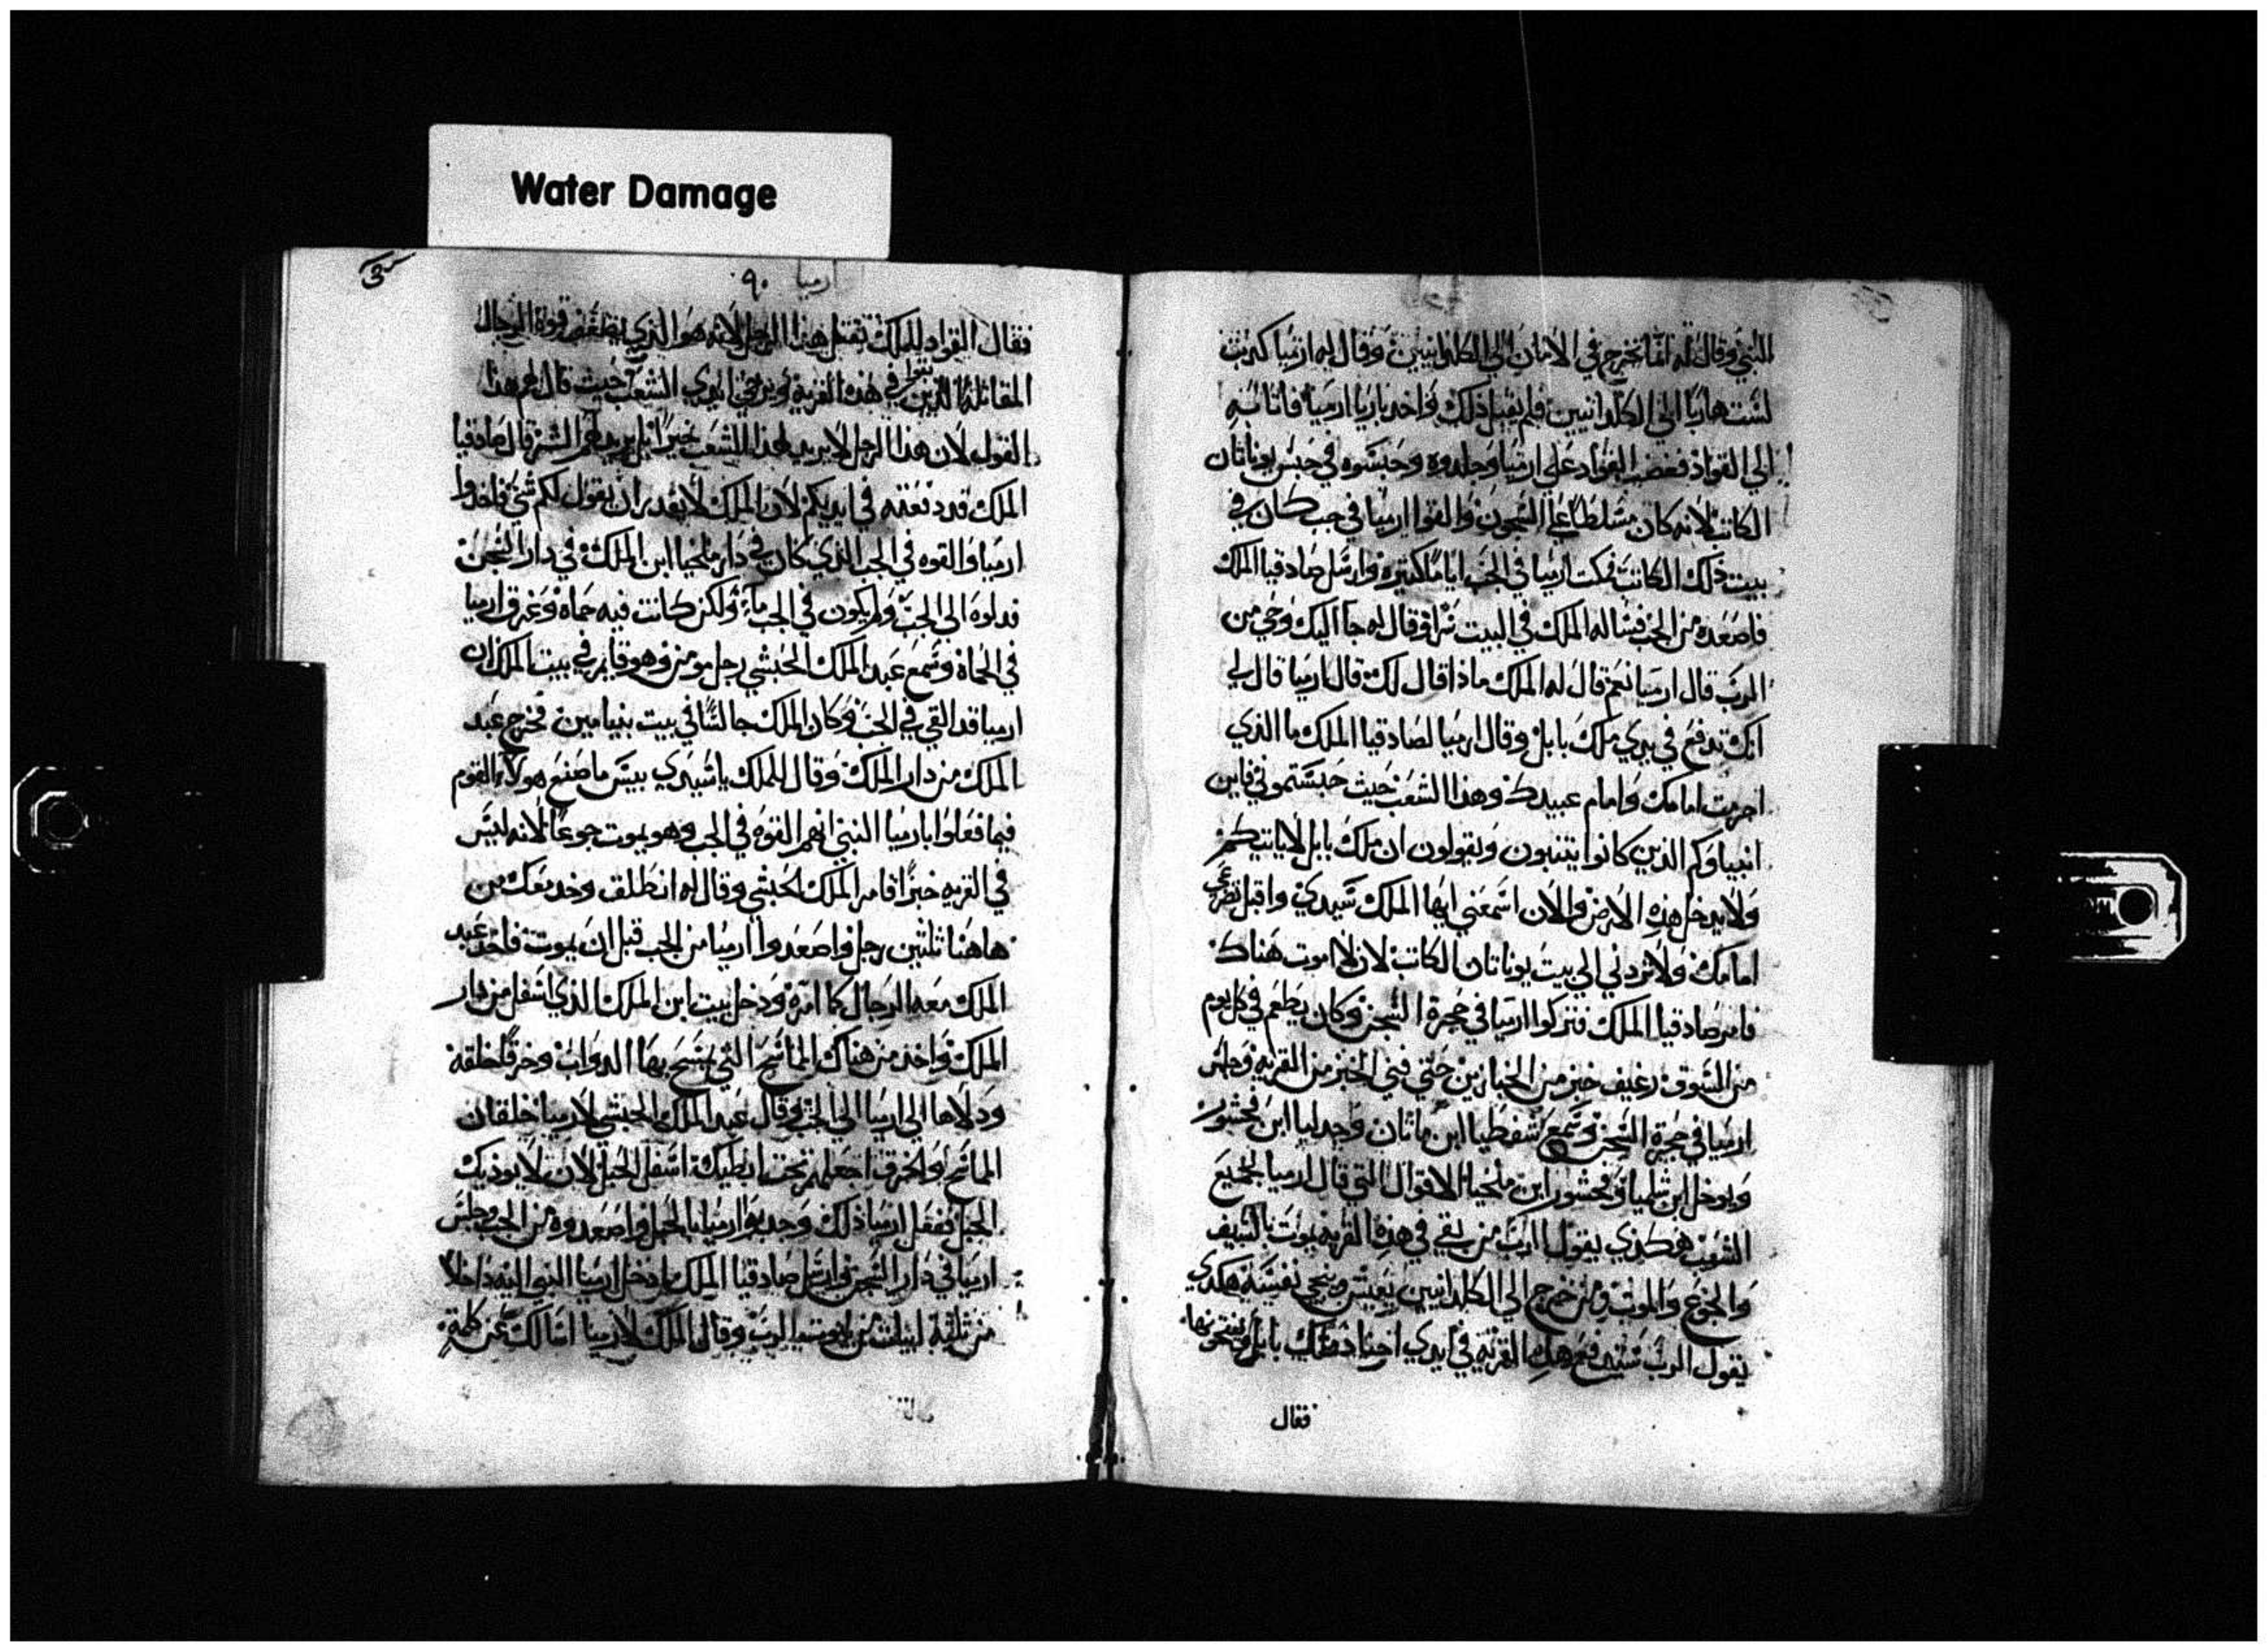 Water Damage
النبي وقال له انما تخرج في الامان الي الكلدانيين وقال له ارميا كدبت
لست هاربا الي الكلدانيين فلم يقبل ذلك واخد باريا ارميا فاتا به
الي القواد فغضب القواد علي ارميا وجلدوه وحبسوه في حبس يوناتان
الكاتب لانه كان مسلطا علي السجون والقوا ارميا في جب كان في
بيت ذلك الكاتب فمكت ارميا في الجب اياما كتيره وارسل صادقيا الملك
فاصعده من الجب فساله الملك في البيت سرا وقال له جا اليك وحي من
الرب قال ارميا نعم قال له الملك ماذا قال لك قال ارميا قال لي
انك تدفع في يدي ملك بابل وقال ارميا لصادقيا الملك ما الذي
اجرمت امامك وامام عبيدك وهذا الشعب حيث حبستموني فاين
انبياوكم الذين كانوا يتنبون ويقولون ان ملك بابل لا ياتيكم
ولا يدخل هذه الارض والان اسمعني ايها الملك سيدي واقبل تضرعي
امامك ولا تردني الي بيت يوناتان الكاتب لان لا اموت هناك
فامر صادقيا الملك فتركوا ارميا في حجرة السجن وكان يطعم في كل يوم
من السوق رغيف خبز من الخبازين حتي فني الخبز من القريه وجلس
ارميا في حجرة السجن وسمع شفطيا ابن ماتان وجدليا ابن فحشور
ويوخل ابن شلميا وفحشور ابن ملخيا الاقوال التي قال ارميا لجميع
الشعب هكذي يقول الرب من بقي في هذه القريه يموت بالسيف
والجوع والموت ومن خرج الي الكلدانيين يعيش وينجي نفسه هكدي
يقول الرب ستدفع هذه القريه في ايدي اجناد ملك بابل ويفتحونها
فقال
ارميا ٩٠
فقال القواد للملك تقتل هذا الرجل لانه هو الذي يضعف قوة الرجال
المقاتله الذين في هذه القريه ويرخي ايدي الشعب حيث قال لهم هذا
القول لان هذا الرجل لا يريد لهذا الشعب خيرا بل يريد لهم الشر قال صادقيا
الملك قد دفعته في ايديكم لان الملك لا يقدر ان يقول لكم شي فاخدوا
ارميا والقوه في الجب الذي كان في دار ملخيا ابن الملك في دار السجن
فدلوه الي الجب ولم يكون في الجب مآء ولكن كانت فيه حماه وغرق ارميا
في الحماة وسمع عبد الملك الحبشي رجل مومن وهو قايم في بيت الملك ان
ارميا قد القي في الجب وكان الملك جالسا في بيت بنيامين فخرج عبد
الملك من دار الملك وقال للملك يا سيدي بيس ما صنع هولآء القوم
فيما فعلوا بارميا النبي انهم القوه في الجب وهو يموت جوعا لانه ليس
في القريه خبزا فامر الملك الحبشي وقال له انطلق وخد معك من
هاهنا ثلثين رجل واصعدوا ارميا من الجب قبل ان يموت فاخد عبد
الملك معه الرجال كما امره ودخل بيت ابن الملك الذي اسفل من دار
الملك واخد من هناك الماسح التي يمسح بها الدواب وخرقا خلقة
ودلاها الي ارميا الي الجب وقال عبد الملك الحبشي لارميا خلقان
الماسح والخرق اجعلهم تحت ابطيك اسفل الحبل لان لا يوذيك
الحبل ففعل ارميا ذلك وجدبوا ارميا بالحبل واصعدوه من الجب وجلس
ارميا في دار السجن وارسل صادقيا الملك وادخل ارميا النبي اليه داخلا
وقال الملك لارميا اسالك عن كلمة